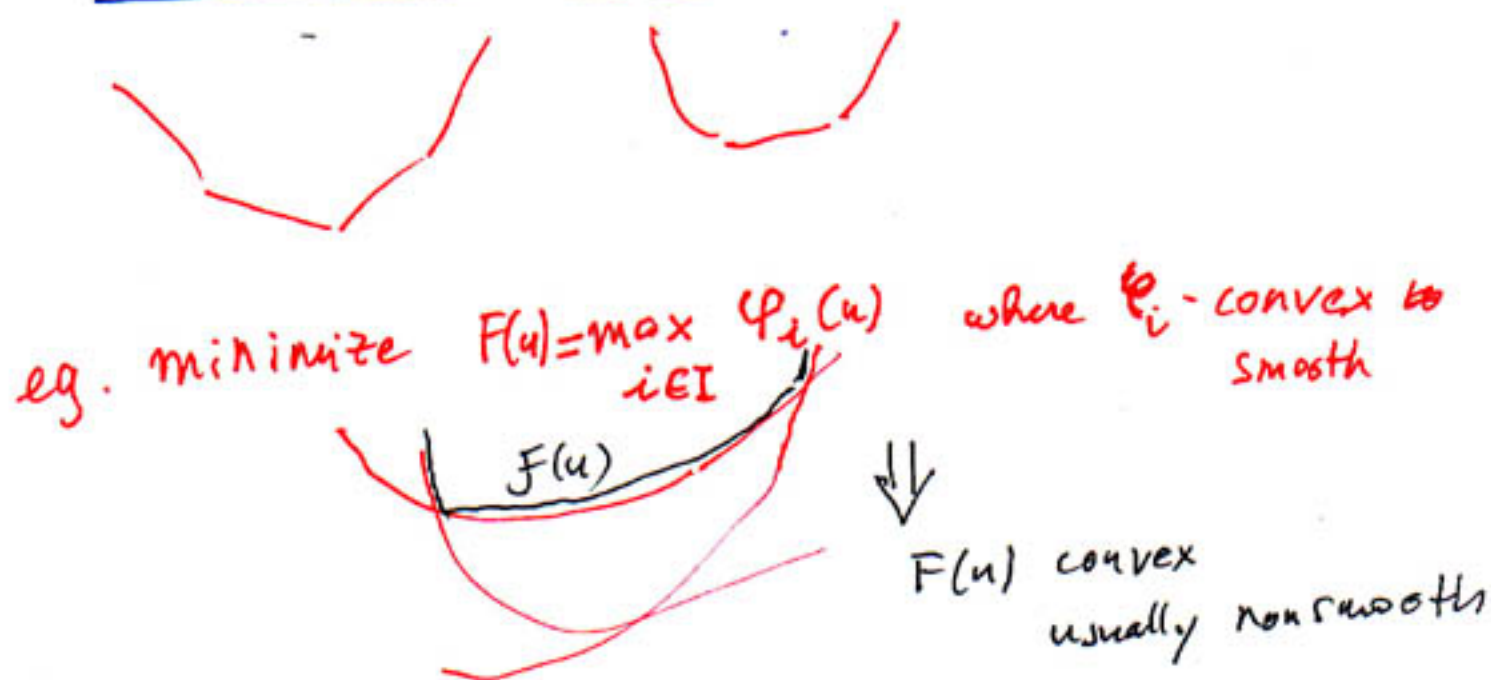 eg. minimize F(u)=max φ_i(u) where φ_i - convex
i∈I smooth
F(u)
⇓
F(u) convex
usually nonsmooth